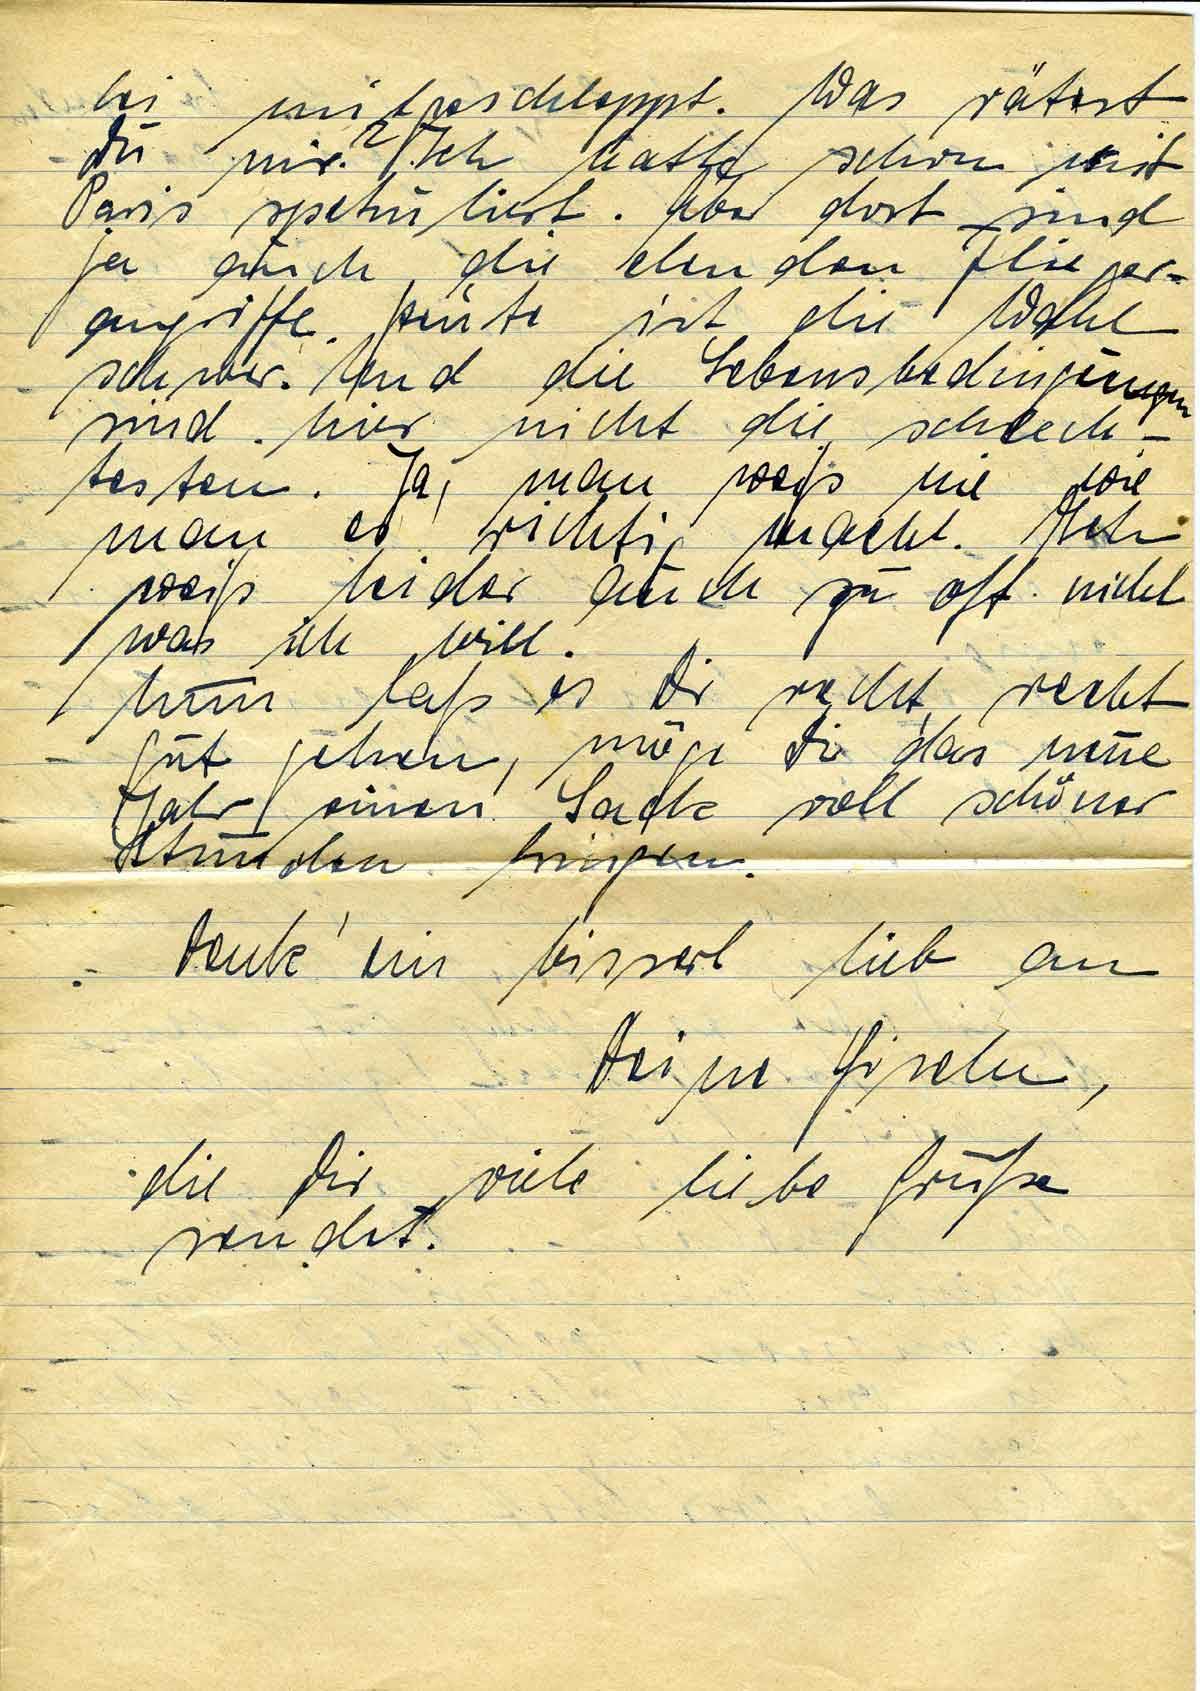 bei mitgeschleppt. Was rätest
Du mir? Ich hatte schon mit
Paris spekuliert. Aber dort sind
ja auch die elenden Flieger-
angriffe. Heute ist die Wahl
schwer. Und die Lebensbedingungen
sind hier nicht die schlech-
testen. Ja, man weiß nie wie
man es richtig macht. Ich
weiß leider auch zu oft nicht
was ich will.
Nun laß es Dir recht, recht
gut gehen, möge Dir das neue
Jahr einen Sack voll schöner
Stunden bringen.
Denk' ein bisserl lieb an
Deine Gisela,
die Dir viele liebe Grüße
sendet.